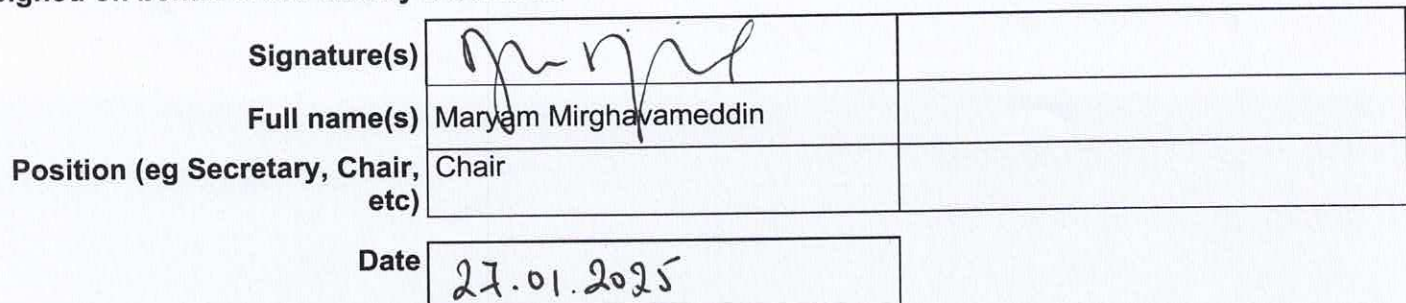 Signature(s)
Full name(s) Maryam Mirghavameddin
Position (eg Secretary, Chair, Chair
etc)
Date 27.01.2025